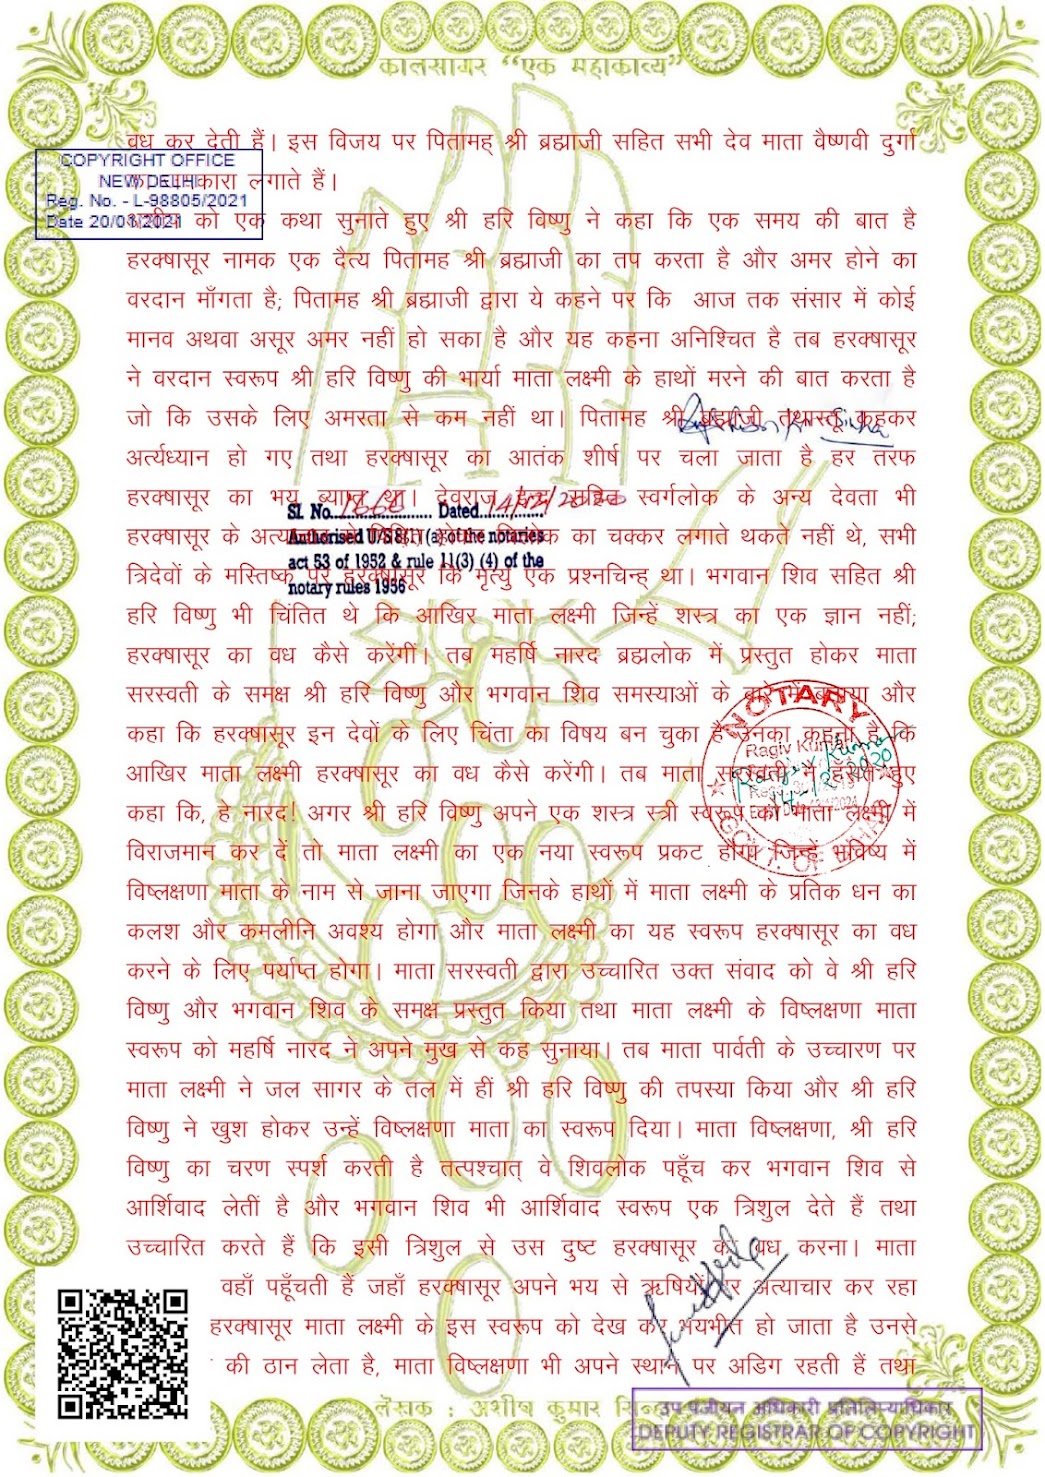 कालसागर “एक महाकाव्य”
वध कर देती हैं। इस विजय पर पितामह् श्री ब्रह्माजी सहित सभी देव माता वैष्णवी दुर्गा
लगाते हैं।
COPYRIGHT OFFICE
NEW DELHI
Reg. No. - L-98805/2021
Date 20/01/2021
को एक कथा सुनाते हुए श्री हरि विष्णु ने कहा कि एक समय की बात है
हरक्षासूर नामक एक दैत्य पितामह श्री ब्रह्माजी का तप करता है और अमर होने का
वरदान माँगता है; पितामह श्री ब्रह्माजी द्वारा ये कहने पर कि आज तक संसार में कोई
मानव अथवा असूर अमर नहीं हो सका है और यह कहना अनिश्चित है तब हरक्षासूर
ने वरदान स्वरूप श्री हरि विष्णु की भार्या माता लक्ष्मी के हाथों मरने की बात करता है
जो कि उसके लिए अमरता से कम नहीं था। पितामह श्री ब्रह्माजी तथास्तू कहकर
अर्त्यध्यान हो गए तथा हरक्षासूर का आतंक शीर्ष पर चला जाता है हर तरफ
हरक्षासूर का भय व्याप्त था। देवराज इन्द्र सहित स्वर्गलोक के अन्य देवता भी
Sl. No. 1668 Dated 14/12/2020
हरक्षासूर के का चक्कर लगाते थकते नहीं थे, सभी
Authorised U/S 8(1) (a) of the notaries
act 53 of 1952 & rule 11(3) (4) of the
notary rules 1956
त्रिदेवों के मस्तिष्क पर हरक्षासूर कि मृत्यु एक प्रश्नचिन्ह् था। भगवान शिव सहित श्री
हरि विष्णु भी चिंतित थे कि आखिर माता लक्ष्मी जिन्हें शस्त्र का एक ज्ञान नहीं;
हरक्षासूर का वध कैसे करेंगीं। तब महर्षि नारद ब्रह्मलोक में प्रस्तुत होकर माता
सरस्वती के समक्ष श्री हरि विष्णु और भगवान शिव समस्याओं के बारे में बताया और
कहा कि हरक्षासूर इन देवों के लिए चिंता का विषय बन चुका है उनका कहना है कि
आखिर माता लक्ष्मी हरक्षासूर का वध कैसे करेंगी। तब माता सरस्वती ने हँसते हुए
NOTARY
Ragiv Kumar
14-12-2020
GOVT. OF BIHAR
कहा कि, हे नारद! अगर श्री हरि विष्णु अपने एक शस्त्र स्त्री स्वरूप को माता लक्ष्मी में
विराजमान कर दें तो माता लक्ष्मी का एक नया स्वरूप प्रकट होगा जिन्हें भविष्य में
विष्लक्षणा माता के नाम से जाना जाएगा जिनके हाथों में माता लक्ष्मी के प्रतिक धन का
कलश और कमलीनि अवश्य होगा और माता लक्ष्मी का यह स्वरूप हरक्षासूर का वध
करने के लिए पर्याप्त होगा। माता सरस्वती द्वारा उच्चारित उक्त संवाद को वे श्री हरि
विष्णु और भगवान शिव के समक्ष प्रस्तुत किया तथा माता लक्ष्मी के विष्लक्षणा माता
स्वरूप को महर्षि नारद ने अपने मुख से कह सुनाया। तब माता पार्वती के उच्चारण पर
माता लक्ष्मी ने जल सागर के तल में हीं श्री हरि विष्णु की तपस्या किया और श्री हरि
विष्णु ने खुश होकर उन्हें विष्लक्षणा माता का स्वरूप दिया। माता विष्लक्षणा, श्री हरि
विष्णु का चरण स्पर्श करती है तत्पश्चात् वे शिवलोक पहूँच कर भगवान शिव से
आर्शिवाद लेतीं है और भगवान शिव भी आर्शिवाद स्वरूप एक त्रिशुल देते हैं तथा
उच्चारित करते हैं कि इसी त्रिशुल से उस दुष्ट हरक्षासूर का वध करना। माता
वहाँ पहूँचती हैं जहाँ हरक्षासूर अपने भय से ऋषियों पर अत्याचार कर रहा
हरक्षासूर माता लक्ष्मी के इस स्वरूप को देख कर भयभीत हो जाता है उनसे
की ठान लेता है, माता विष्लक्षणा भी अपने स्थान पर अडिग रहती हैं तथा
लेखक : अशीष कुमार
उप पंजीयन अधिकारी प्रतिलिप्याधिकार
DEPUTY REGISTRAR OF COPYRIGHT